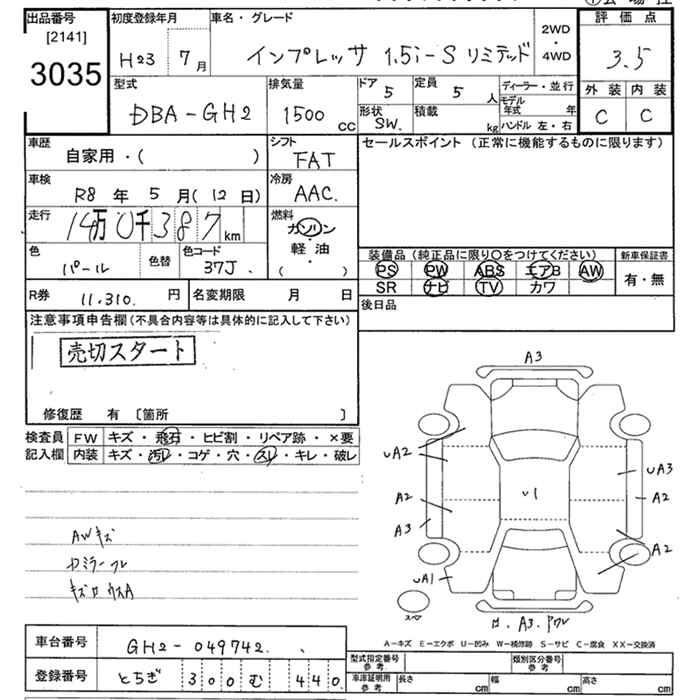 出品番号 [2141] 3035
初度登録年月 H23 7月
車名・グレード インプレッサ 1.5i-S リミテッド 2WD・4WD
評価点 3.5
型式 DBA-GH2
排気量 1500 CC
ドア 5
定員 5 人
形状 SW.
積載 kg
ディーラー・並行
モデル年式 年
ハンドル 左・右
外装 C
内装 C
車歴 自家用・( )
シフト FAT
セールスポイント (正常に機能するものに限ります)
車検 R8 年 5 月(12 日)
冷房 AAC.
走行 14万0千387 km
燃料 ガソリン・軽油 ( )
色 パール
色替
色コード 37J.
装備品 (純正品に限り○をつけてください)
PS PW ABS エアB AW
SR ナビ TV カワ
新車保証書 有・無
R券 11,310. 円
名変期限 月 日
後日品
注意事項申告欄 (不具合内容等は具体的に記入して下さい)
売切スタート
修復歴 有 〔箇所 〕
検査員記入欄
FW キズ・飛石・ヒビ割・リペア跡・×要
内装 キズ・汚レ・コゲ・穴・スレ・キレ・破レ
A3
UA2
UA3
U1
A2
A2
A3
A2
UA1
A3.
AWキズ
A-キズ E-エクボ U-凹み W-補修跡 S-サビ C-腐食 XX-交換済
車台番号 GH2-049742.
登録番号 とちぎ 300 む 440
型式指定番号 参考
類別区分番号 参考
車庫証明用 参考 長さ cm 幅 cm 高さ cm